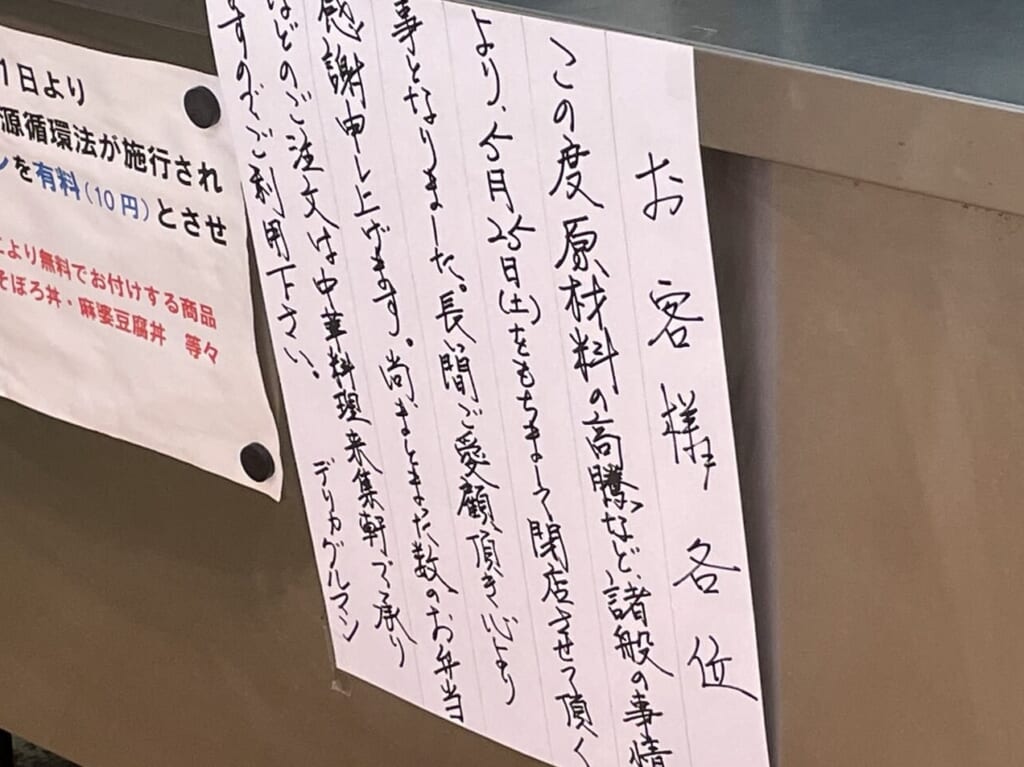 お客様各位
この度原材料の高騰など、諸般の事情
より、今月25日(土)をもちまして閉店させて頂く
事となりました。長い間ご愛顧頂き心より
感謝申し上げます。尚まとまった数のお弁当
などのご注文は中華料理来集軒で承り
ますのでご利用下さい。
デリカグルマン
1日より
源循環法が施行され
ンを有料(10円)とさせ
により無料でお付けする商品
そぼろ丼・麻婆豆腐丼 等々